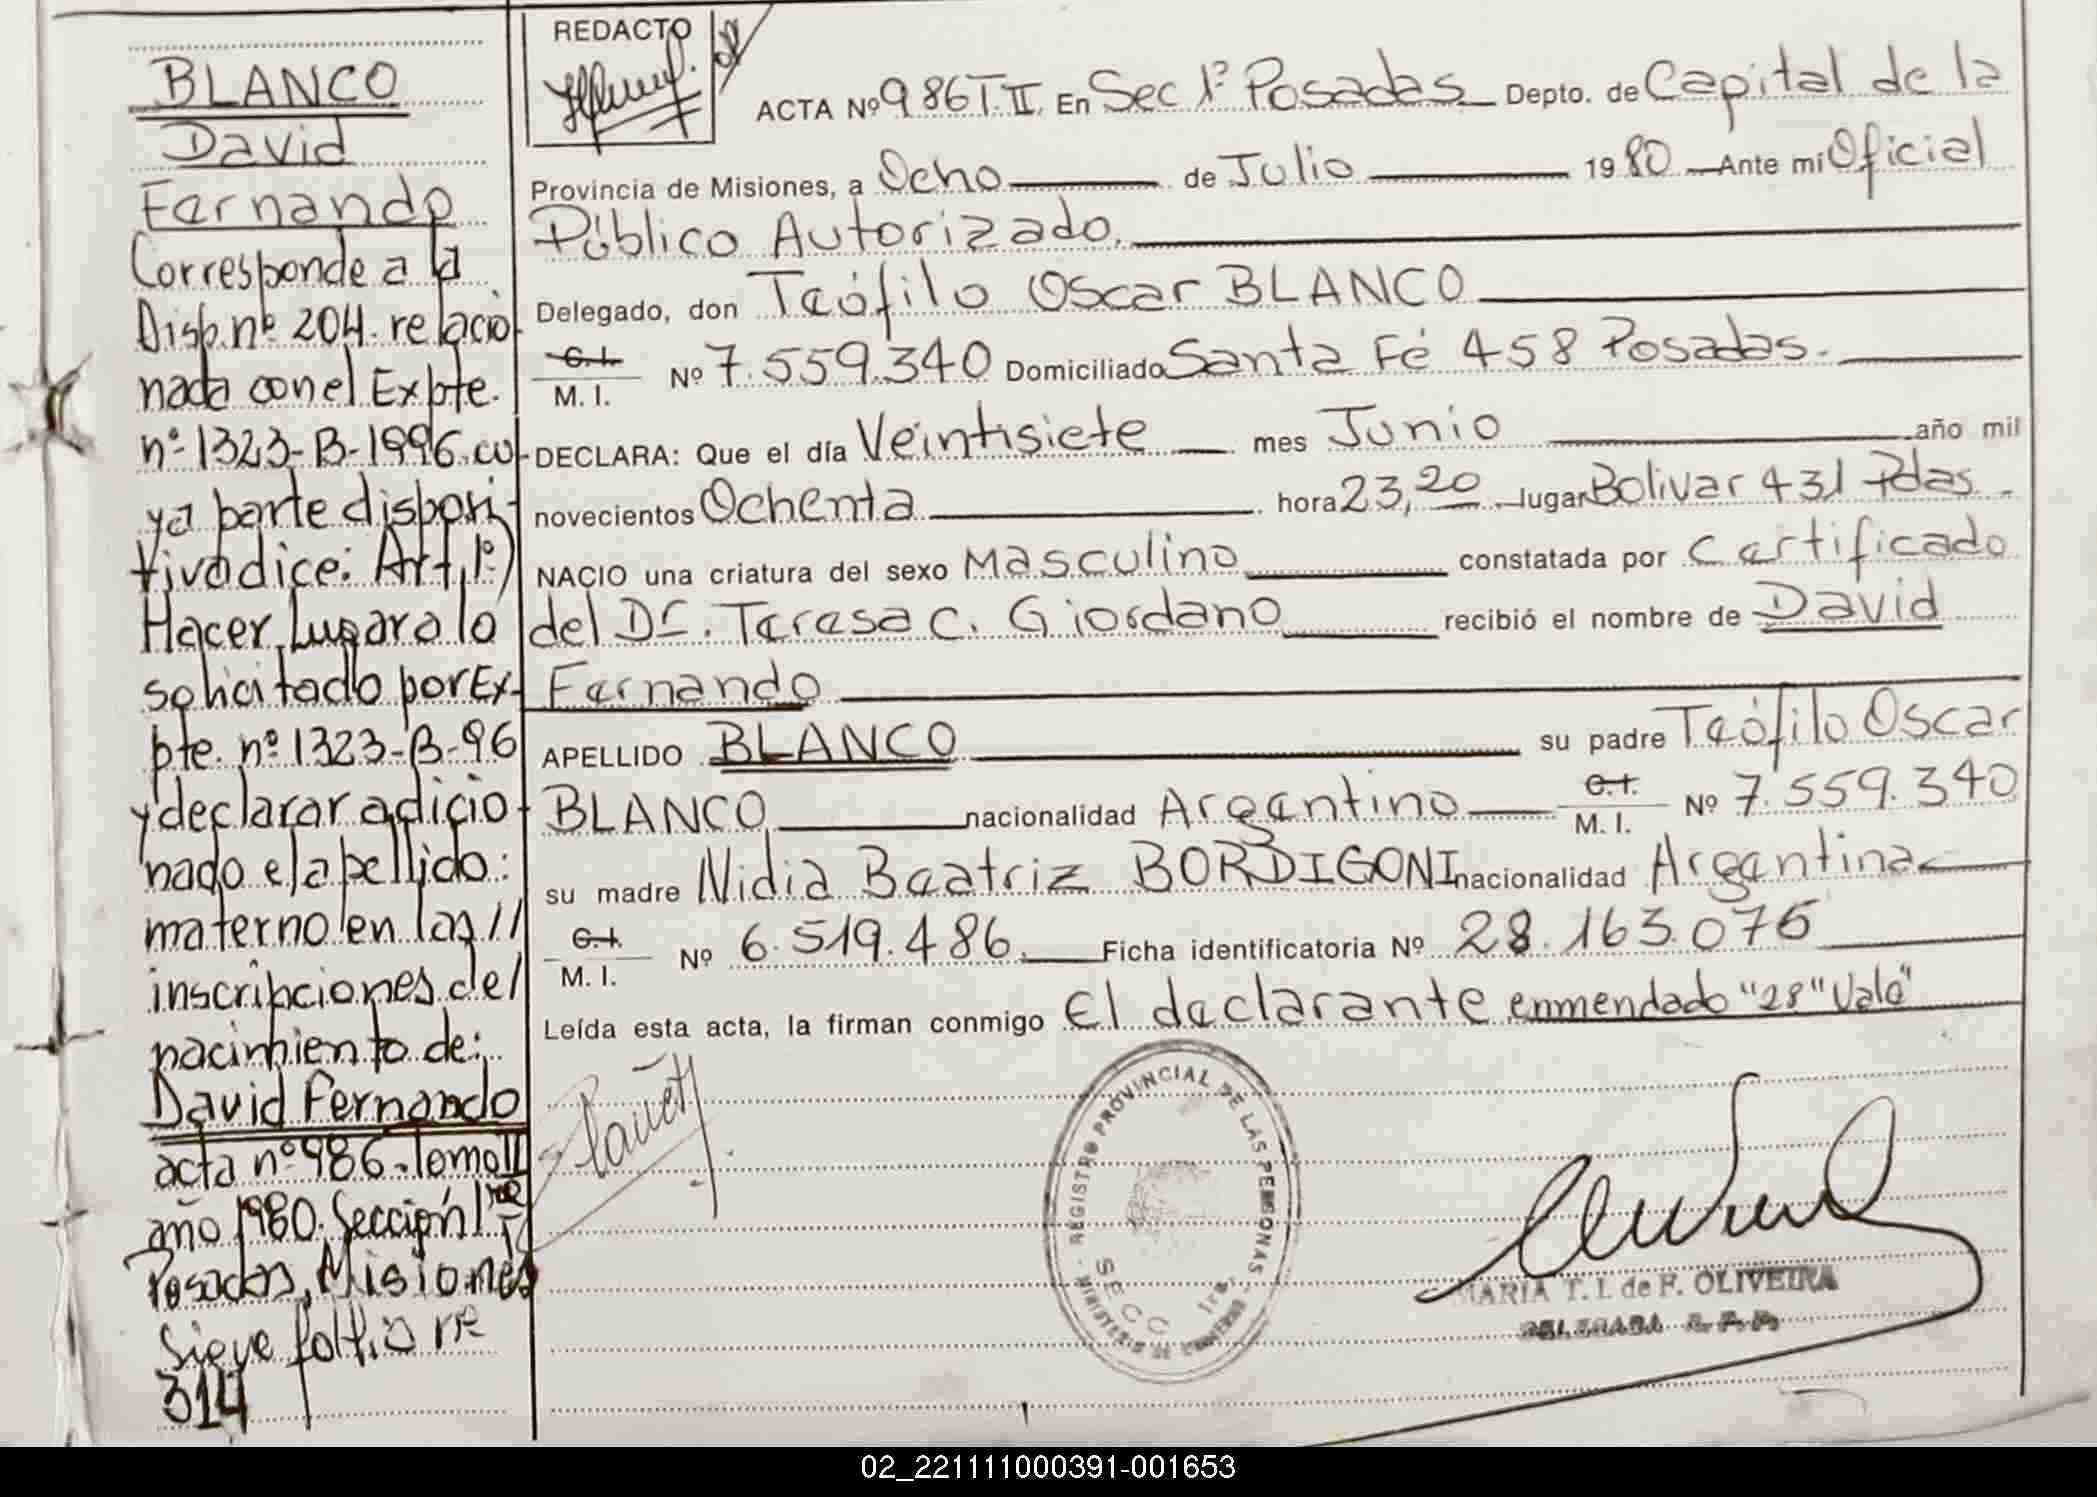 BLANCO
David
Fernando
Corresponde a la
Disp. nº 204. relacio
nada con el Expte.
nº 1323-B-1996. cu-
ya parte disposi-
tiva dice: Art, 1º)
Hacer Lugar a lo
solicitado por Ex-
pte. nº 1323-B-96
y declarar adicio-
nado el apellido:
materno en las //
inscripciones del
nacimiento de:
David Fernando
acta nº 986. Tomo II
año 1980. Sección 1ra
Posadas, Misiones
Sigue foltio nº
314
REDACTO
ACTA Nº 986 T. II. En Sec 1º Posadas Depto. de Capital de la
Provincia de Misiones, a Ocho de Julio 1980 Ante mi Oficial
Público Autorizado.
Delegado, don Teófilo Oscar BLANCO
C.I.
M. I. Nº 7.559.340 Domiciliado Santa Fé 458 Posadas.
DECLARA: Que el día Veintisiete mes Junio año mil
novecientos Ochenta hora 23,20 lugar Bolivar 431 Pdas.
NACIO una criatura del sexo Masculino constatada por Certificado
del Dr. Teresa C. Giordano recibió el nombre de David
Fernando
APELLIDO BLANCO su padre Teófilo Oscar
BLANCO nacionalidad Argentino C.I. M. I. Nº 7.559.340
su madre Nidia Beatriz BORDIGONI nacionalidad Argentina
C.I.
M. I. Nº 6.519.486. Ficha identificatoria Nº 28.163.076
Leída esta acta, la firman conmigo El declarante enmendado "28" Vale"
REGISTRO PROVINCIAL DE LAS PERSONAS - MINISTERIO DE GOBIERNO
SECC 1ra.
MARIA T. I. de F. OLIVEIRA
DELEGADA R. P. P.
02_221111000391-001653